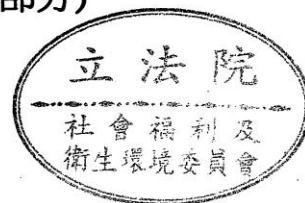 部分)
立法院
社會福利及
衛生環境委員會